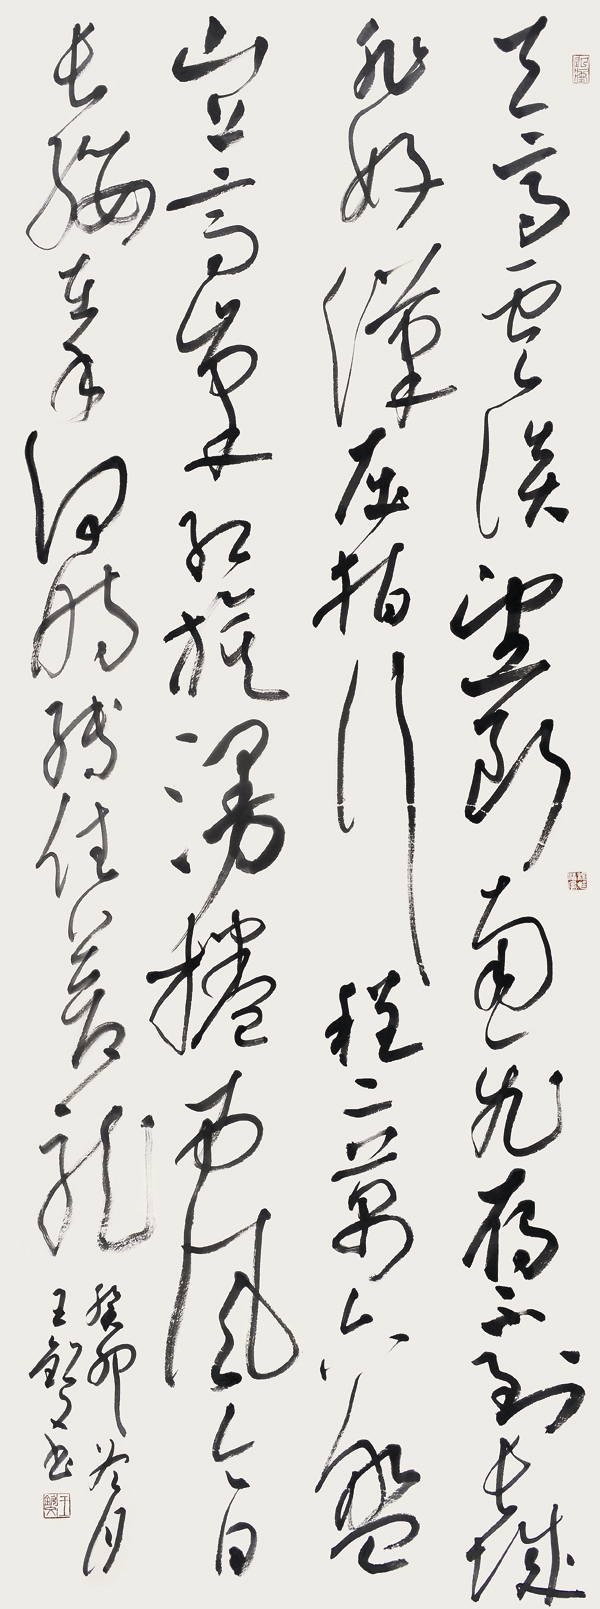 天高雲淡望斷南飛雁不到長城
非好漢屈指行程二萬六盤
山上高峯紅旗漫捲西風今日
長纓在手何時縛住蒼龍
癸卯冬月
王書